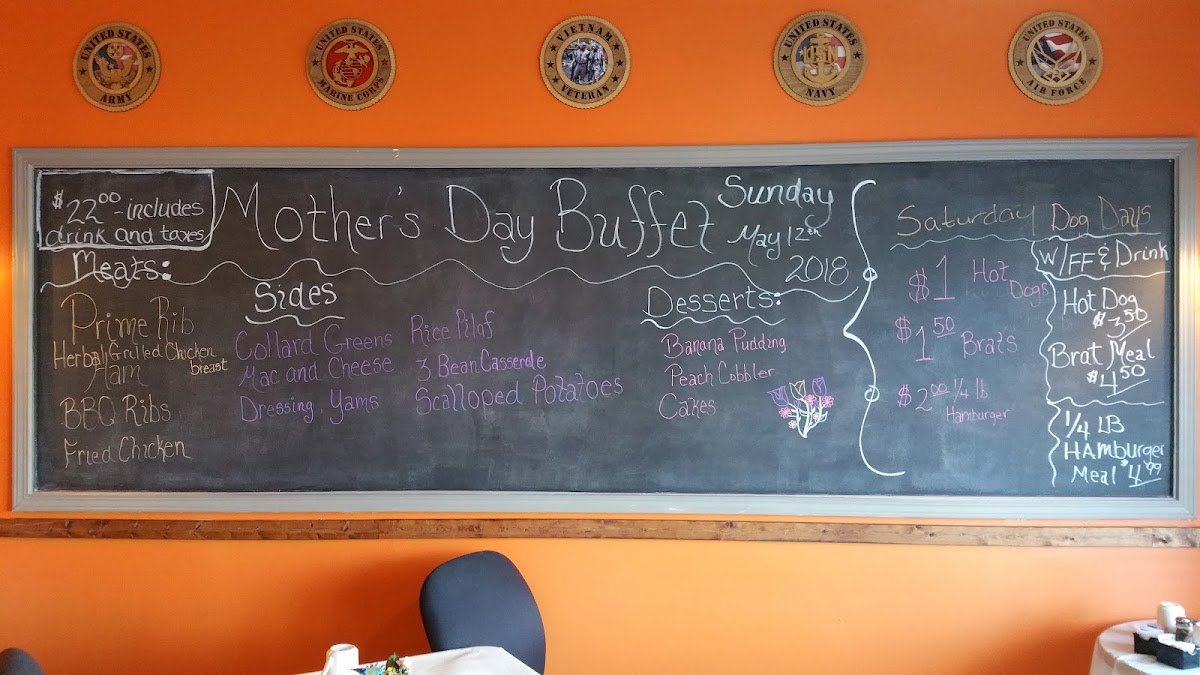 UNITED STATES
ARMY
UNITED STATES
MARINE CORPS
VIETNAM
VETERAN
UNITED STATES
NAVY
UNITED STATES
AIR FORCE
$22.00 - includes
drink and taxes
Mother's Day Buffet
Sunday
May 12th
2018
Meats:
Prime Rib
Herbal Grilled Chicken
breast
Ham
BBQ Ribs
Fried Chicken
Sides
Collard Greens
Mac and Cheese
Dressing, Yams
Rice Pilof
3 Bean Casserole
Scalloped Potatoes
Desserts:
Banana Pudding
Peach Cobbler
Cakes
Saturday Dog Days
$1 Hot
Dogs
$1 50 Brats
$2 00 1/4 lb
Hamburger
W/FF & Drink
Hot Dog
$3 50
Brat Meal
$4 50
1/4 LB
HAmburger
Meal $4.99